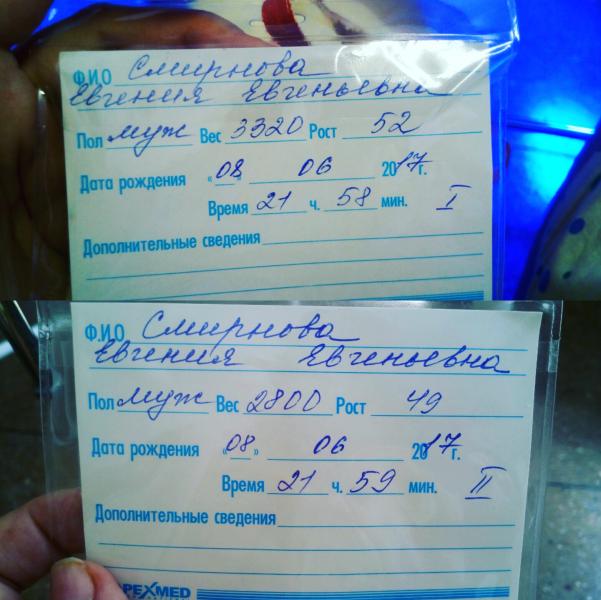 Ф.И.О Смирнова
Евгения Евгеньевна
Пол муж Вес 3320 Рост 52
Дата рождения «08» 06 2017г.
Время 21 ч. 58 мин. I
Дополнительные сведения
Ф.И.О Смирнова
Евгения Евгеньевна
Пол муж Вес 2800 Рост 49
Дата рождения «08» 06 2017г.
Время 21 ч. 59 мин. II
Дополнительные сведения
APEXMED